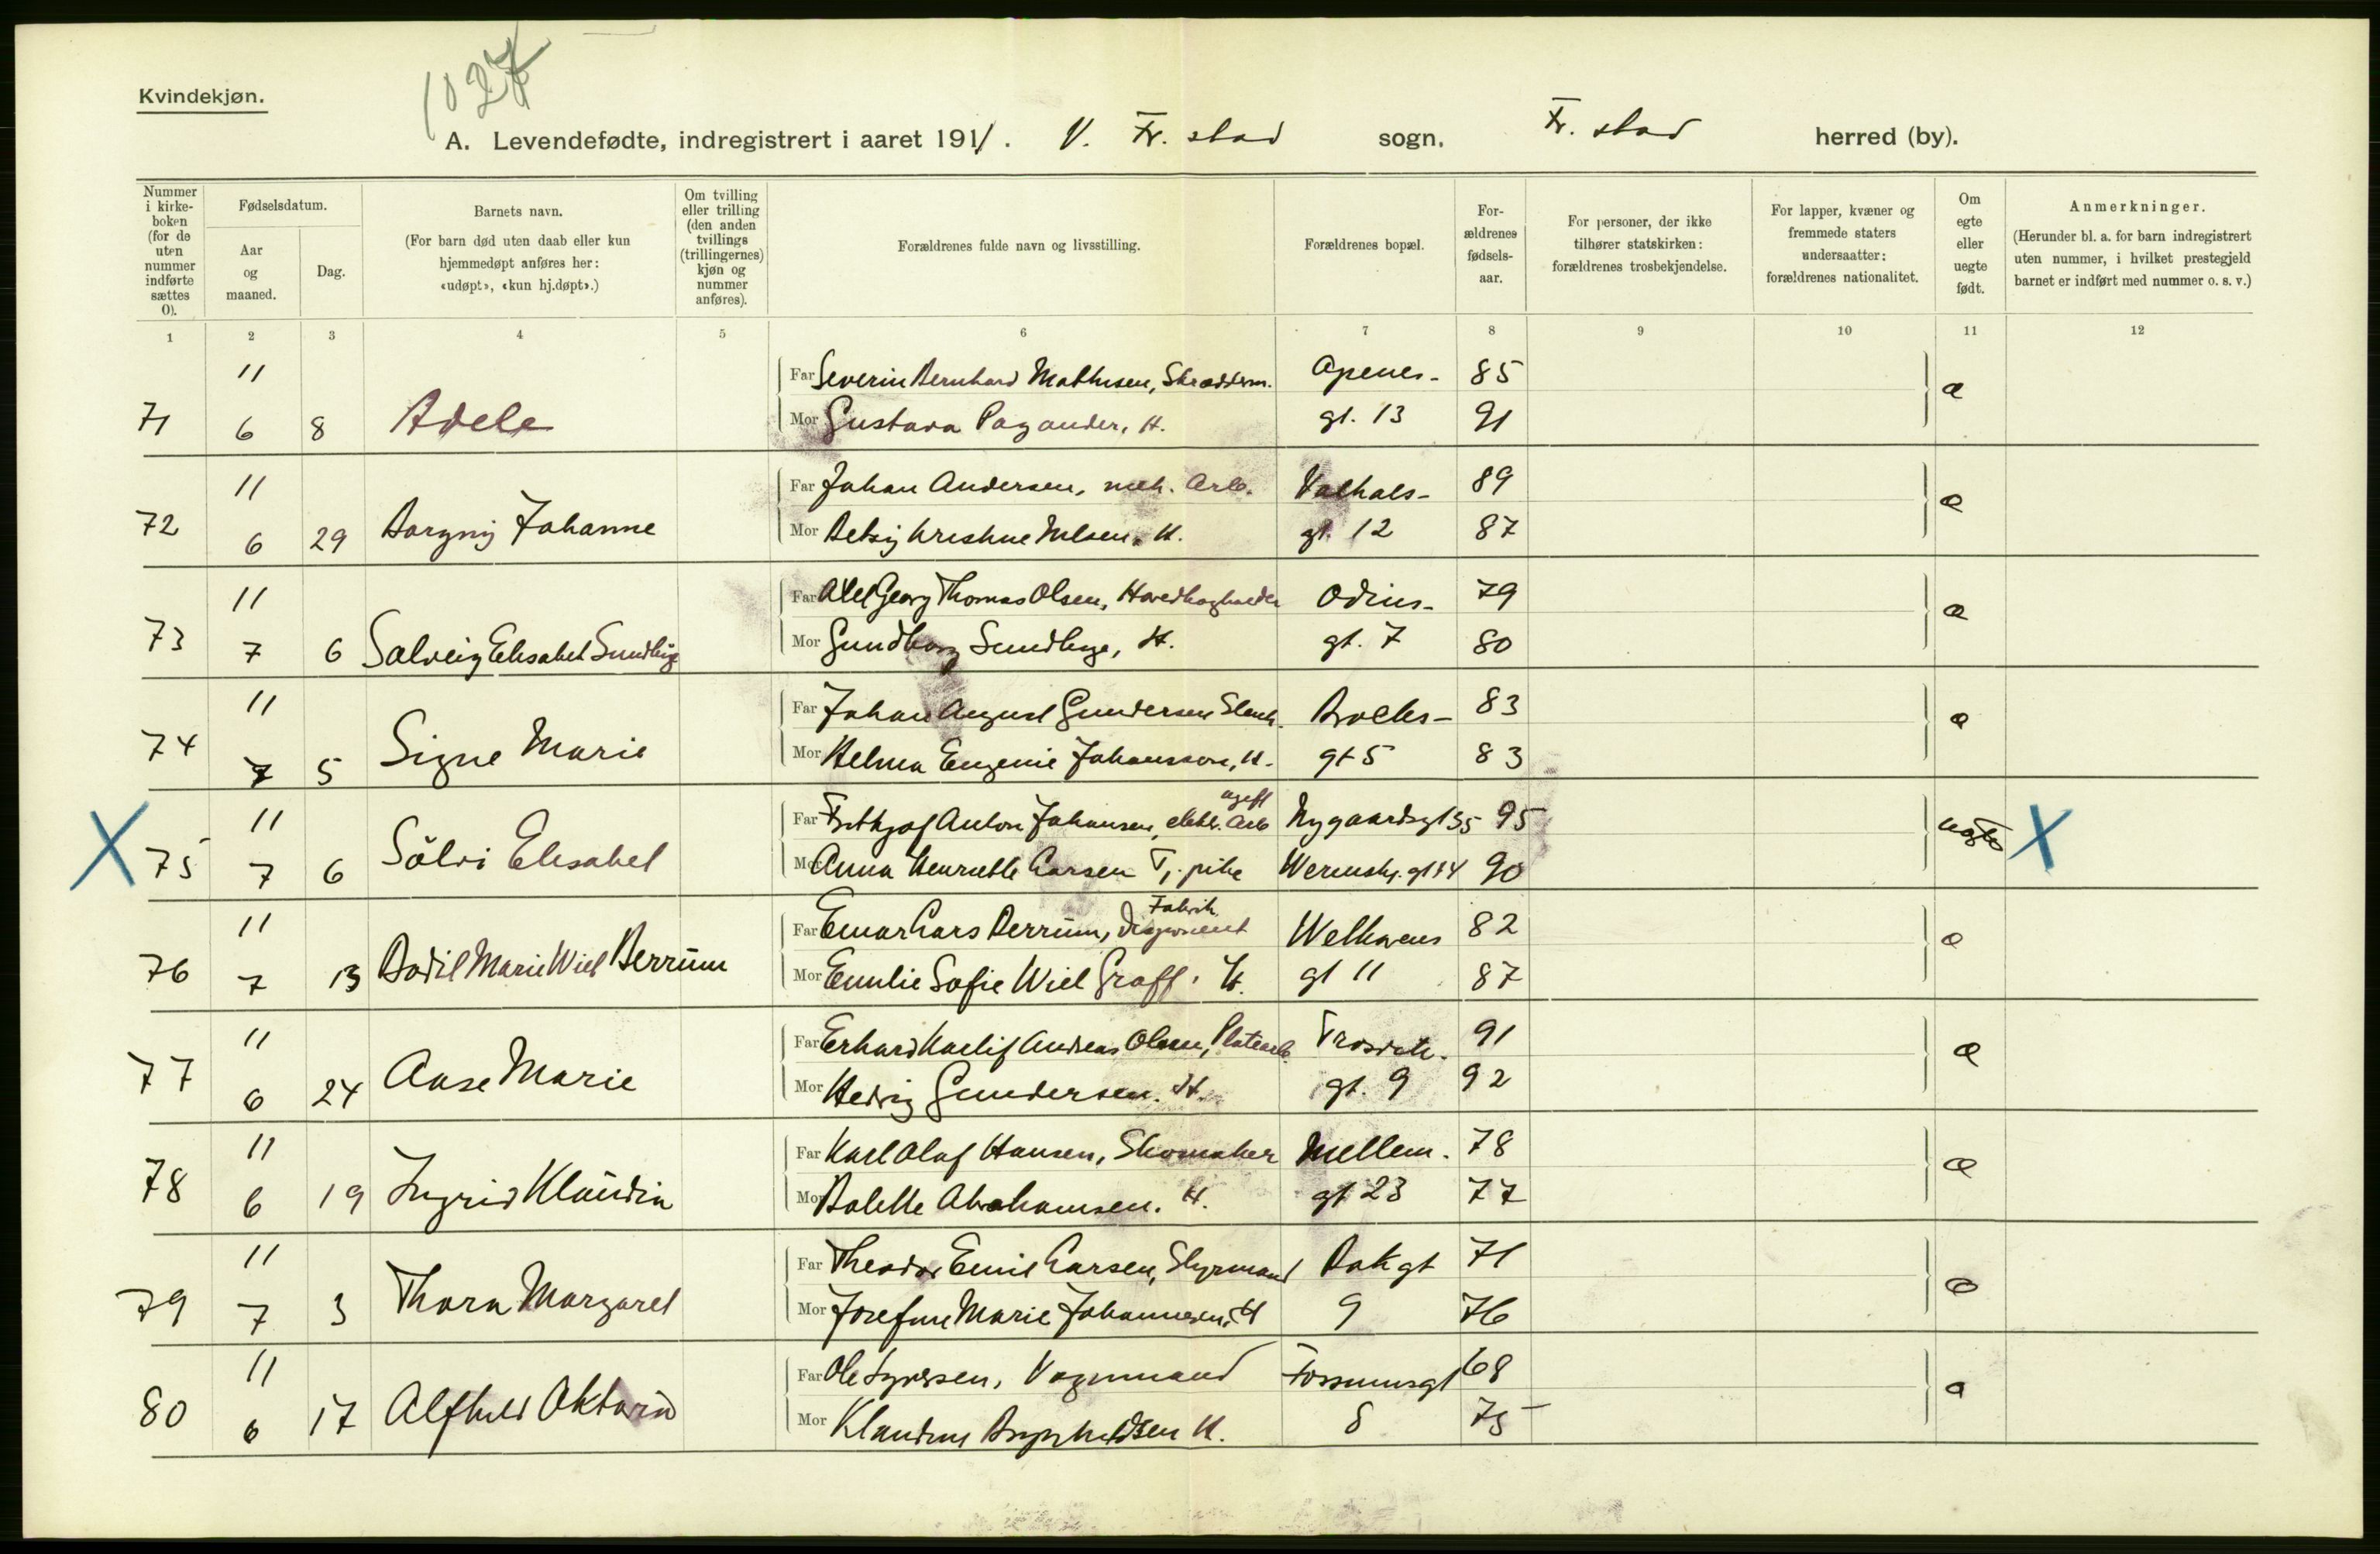 1027
Kvindekjøn.
A. Levendefødte, indregistrert i aaret 1911. V. Fr. stad sogn. Fr. stad herred (by).
Nummer i kirke- boken (for de uten nummer indførte sættes 0).
Fødselsdatum.
Aar og maaned.
Dag.
Barnets navn.
(For barn død uten daab eller kun hjemmedøpt anføres her: «udøpt», «kun hj.døpt».)
Om tvilling eller trilling (den anden tvillings (trillingernes) kjøn og nummer anføres).
Forældrenes fulde navn og livsstilling.
Forældrenes bopæl.
For- ældrenes fødsels- aar.
For personer, der ikke tilhører statskirken: forældrenes trosbekjendelse.
For lapper, kvæner og fremmede staters undersaatter: forældrenes nationalitet.
Om egte eller uegte født.
Anmerkninger.
(Herunder bl. a. for barn indregistrert uten nummer, i hvilket prestegjeld barnet er indført med nummer o. s. v.)
1 2 3 4 5 6 7 8 9 10 11 12
11 Far Severin Bernhard Mathisen, Skrædderm. Apenes- 85 æ
71 6 8 Adele Mor Gustava Pagander, H. gt. 13 91
11 Far Johan Andersen, mek. Arb. Valhals- 89 æ
72 6 29 Borgny Johanne Mor Betsy Kristine Nilsen, H. gt. 12 87
11 Far Axel Georg Thomas Olsen, Ovnedkogholder Odins- 79 æ
73 7 6 Solveig Elisabet Sundbye Mor Gundborg Sundbye, H. gt. 7 80
11 Far Johan August Gundersen Stenh. 83 æ
74 7 5 Signe Marie Mor Helma Eugenie Johansson, H. gt 5 83
11 Far Frithjof Anton Johansen, elektr. Arb ugift Nygaardsgt 35 95 uegte X
X 75 7 6 Sölvi Elisabet Mor Anna Henriette Larsen Tj. pike Wernsk. gt 14 90
11 Far Einar Lars Berrum, Fabrik Disponent Welhavens 82 æ
76 7 13 Bodil Marie Wiel Berrum Mor Emilie Sofie Wiel Graff, H. gt 11 87
11 Far Erhard Karlif Andreas Olsen, Platearb. Trosvik- 91 æ
77 6 24 Aase Marie Mor Hedvig Gundersen. H. gt. 9 92
11 Far Karl Olaf Hansen, Skomaker Mellem- 78 æ
78 6 19 Ingrid Klaudia Mor Bolette Abrahamsen. H. gt 23 77
11 Far Theodor Emil Larsen, Styrmand Bakgt 71 æ
79 7 3 Thora Margaret Mor Josefine Marie Johannesen, H 9 76
11 Far Ole Syversen, Vognmand Fossumsgt 68 æ
80 6 17 Alfhild Oktavia Mor Klaudine H. 8 75